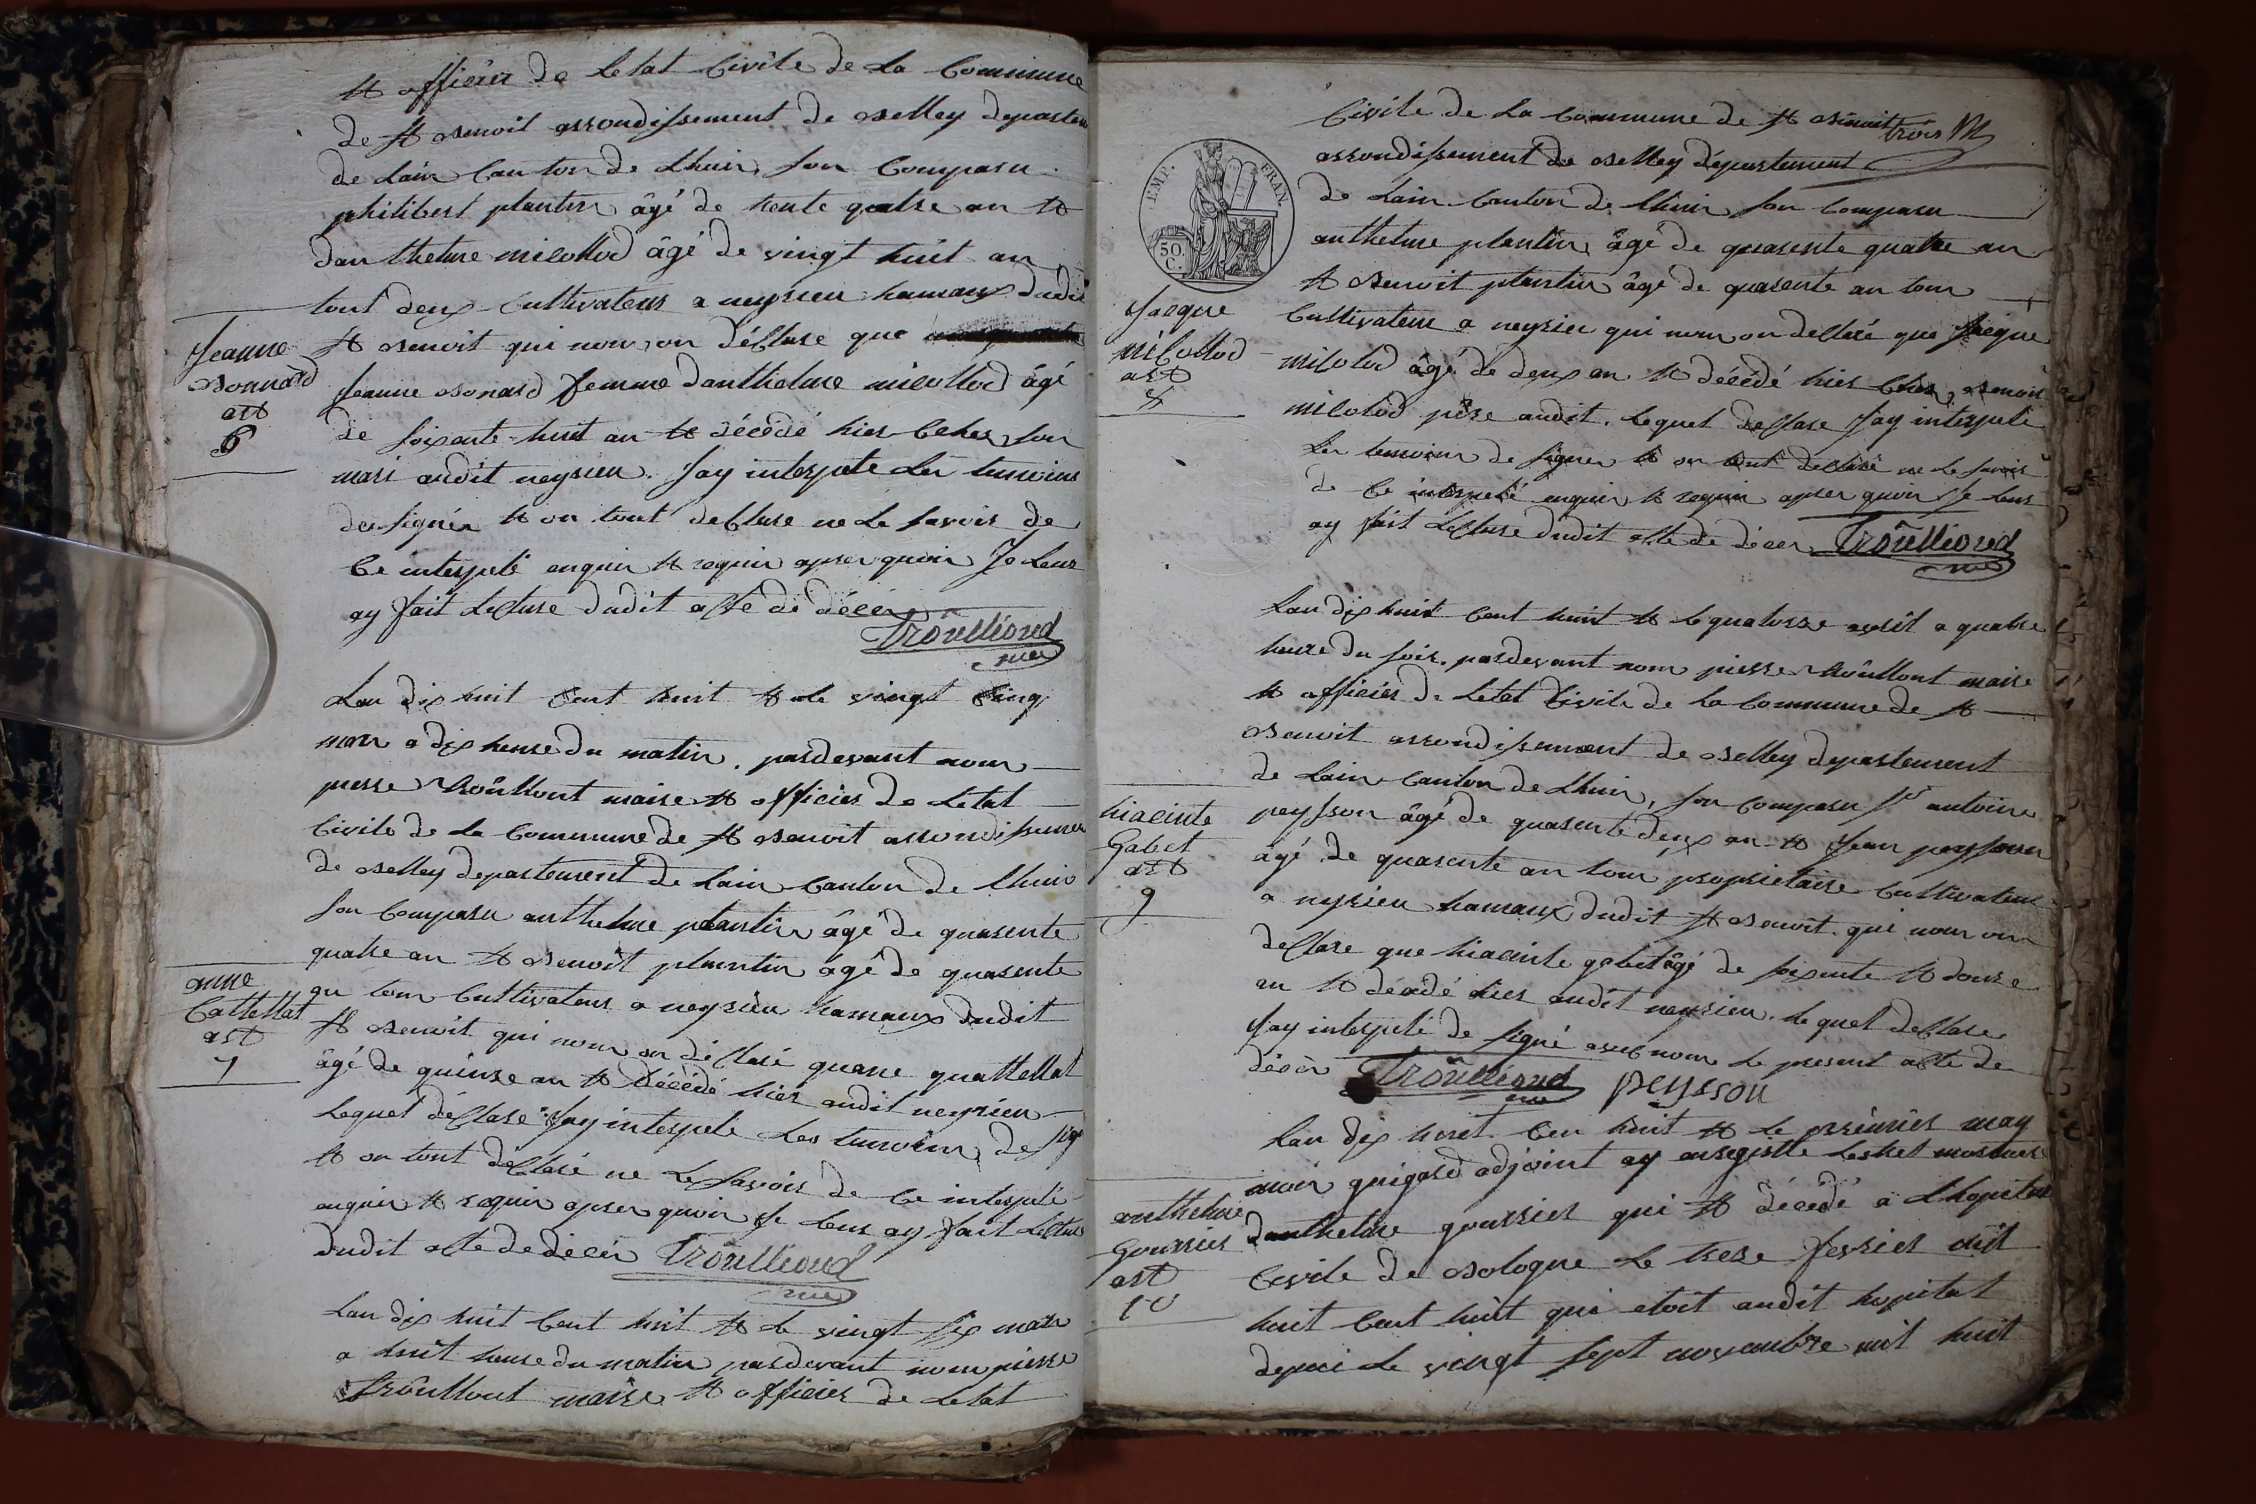 et officier de Letat Civile de La Commune
de st Benoit arrondissement de Belley departem
de Lain Canton de Lhuis, son Comparu
philibert plantin âgé de trente quatre an et
danthelme milollod âgé de vingt huit an
tout deux Cultivateur a neyrieu hamaux dudit
st Benoit qui nous on déClare que
Jeanne
Bonnard
art
6
Jeanne Bonard femme danthelme milollod âgé
de soixante huit an et décédé hier Cehes son
mari audit neyrieu. Jay interpete Les temoins
de signer et on tout deClare ne Le savoir de
Ce interpelé enquir et requir apres quoir Je Leur
ay fait Lecture dudit acte de décér
Troullioud
mer
Lan dix huit Cent huit et Le vingt Cinq
mars a dix heure du matin. pardevant nous
pierre troullout maire et officier de Letat
Civile de La Commune de st Benoit arrondissemen
de Belley departement de Lain Canton de Lhuis
son Comparu anthelme plantin âgé de quarente
quatre an et Benoît plantin âgé de quarente
an tous Cultivateur a neyrieu hamaux dudit
anne
Cattellat
art
7
st Benoit qui nous on déClaré quane quattellat
âgé de quinze an et décédé hier audit neyrieu
Lequel déClare Jay interpele Les temoins de sig
et on tout déClaré ne Le savoir de Ce interpelé
enquir et requir apres quoir Je Leur ay fait Lectur
dudit acte de décér Troullioud
mer
Lan dix huit Cent huit et Le vingt six mars
a huit heure du matin pardevant nous pierre
troullout maire et officier de Letat
trois
EMP. FRAN.
50 C.
Civile de La Commune de st Benoit
arrondissement de Belley departement
de Lain Canton de Lhuis son Comparu
anthelme plantin âgé de quarente quatre an
et Benoit plantin âgé de quarente an tous
Jacque
milollod
art
8
Cultivateur a neyrieu qui nous on declaré que Jacque
milolod âgé de deux an et décédé hier Ches Benoit
milolod père audit. Lequel deClare Jay interpelé
Les temoins de signer et on tout declaré ne Le savoir
de Ce interpelé enquir et requir apres quoir Je Leur
ay fait Lecture dudit acte de décer Troullioud
mer
Lan dix huit Cent huit et Le quatorze avril a quatre
heure du soir. pardevant nous pierre troullout maire
et officier de Letat Civile de La Commune de st
Benoit arrondissement de Belley departement
de Lain Canton de Lhuis, son Comparu sr antoine
hiacinte
Gabet
art
9
peysson âgé de quarente deux an et Jean peysson
âgé de quarente an tous proprietaire Cultivateur
a nyrieu hamaux dudit st Benoit. qui nous on
deClare que hiacinte gabet âgé de soixante et douze
an et décédé hier audit neyrieu. Lequel deClare
Jay interpelé de signé avec nous Le present acte de
décèr Troullioud peysson
mer
Lan dix huit Cen huit et Le premier may
nous guigard adjoint ay enregistre Lextret mortuere
anthelme
Gourrier
art
10
danthelme gourrier qui et décédé a Lhopital
Civile de Bologne Le treze fevrier mil
huit Cent huit qui etoit audit hopital
depui Le vingt sept novembre mil huit